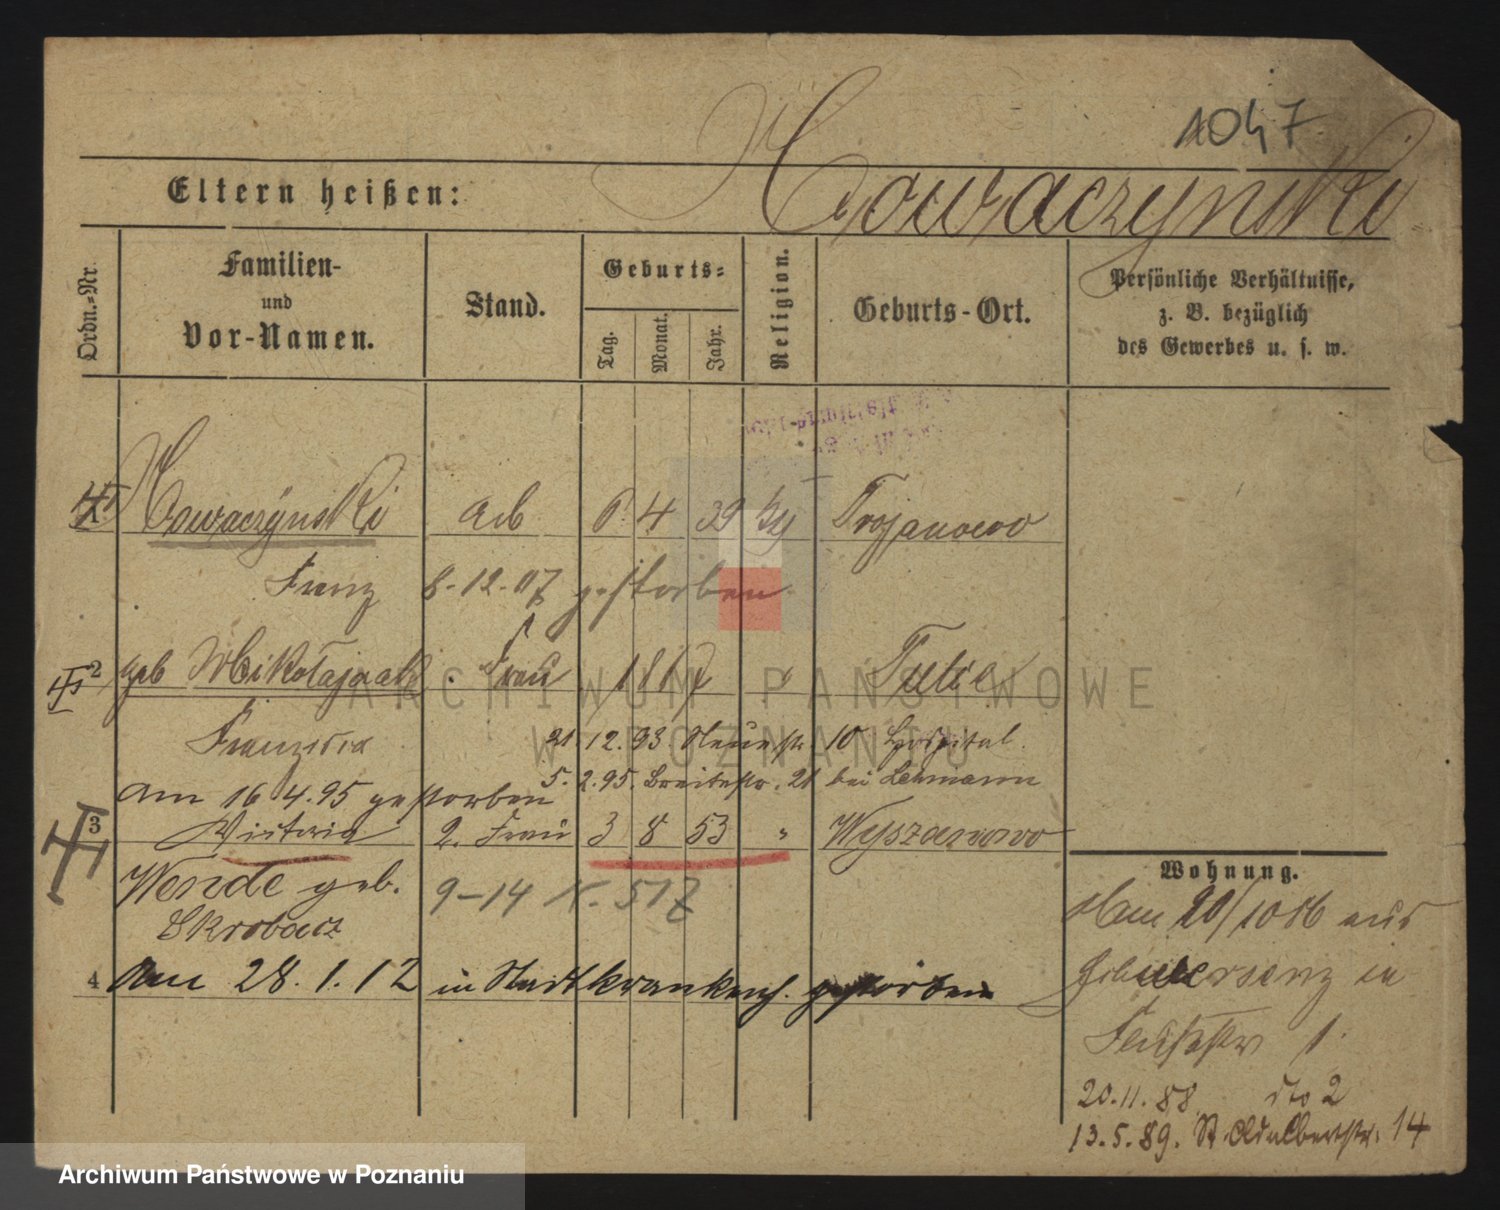 1047
Howaczynski
Eltern heißen:
Ordn.=Nr.
Familien-
und
Vor-Namen.
Stand.
Geburts=
Tag.
Monat.
Jahr.
Religion.
Geburts-Ort.
Persönliche Verhältnisse,
z. B. bezüglich
des Gewerbes u. s. w.
Howaczÿnski Arb 6 4 39 Trojanowo
Franz 8-12-07 gestorben
2 geb Mikołajczak Frau 1
Franziska 21.12.93. Neuestr 10 Hospital
5.2.95. Breitestr. 21 bei Lehmann
Am 16 4.95 gestorben
3 Victoria 2. Frau 3 8 53 " Wyszanowo
Wende geb. 9-14
Skrobacz
4 Am 28.1.12 in Stadtkrankenh. gestorben
Wohnung.
20/10 86 aus
in
1.
20.11.88. dto 2
13.5.89. St. Adalbertstr. 14
ARCHIWUM PAŃSTWOWE
W POZNANIU
Archiwum Państwowe w Poznaniu